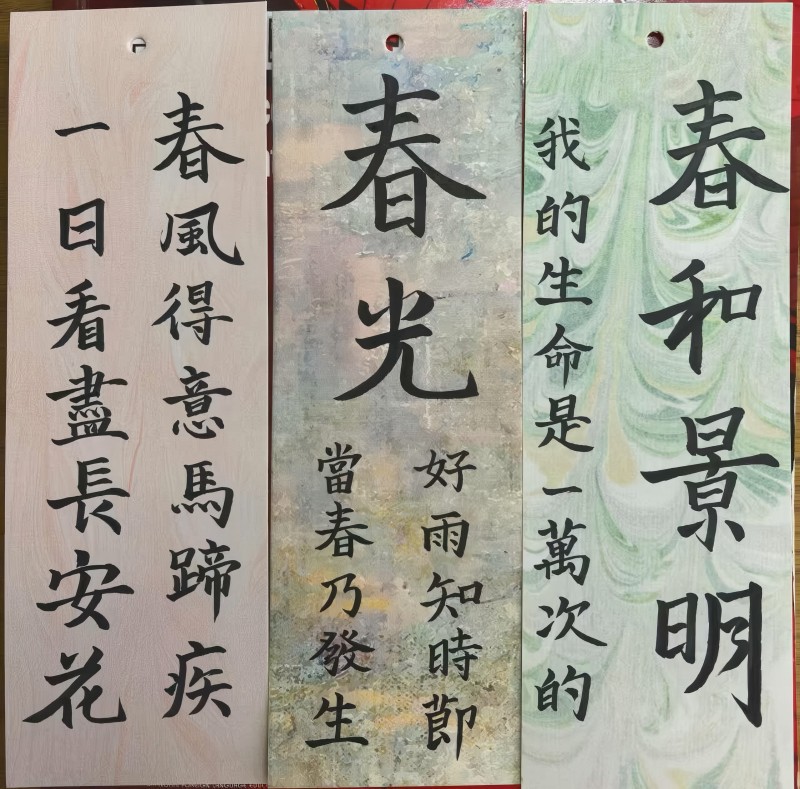 春和景明
我的生命是一萬次的
春光
好雨知時節
當春乃發生
春風得意馬蹄疾
一日看盡長安花